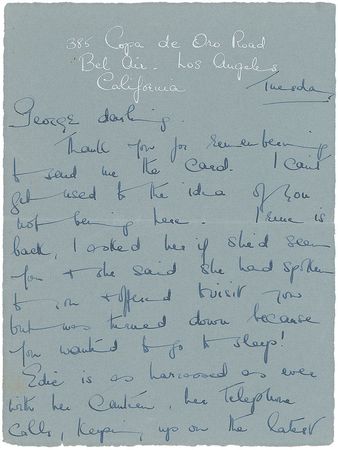 385 Copa de Oro Road
Bel Air. Los Angeles
California
Tuesday
George darling.
Thank you for remembering
to send me the card. I can't
get used to the idea of you
not being here. is
back, I asked her if she'd seen
you & she said she had spoken
to you & offered to visit you
but was turned down because
you wanted to go to sleep!
Edie is as harrassed as ever
with her , her Telephone
calls, keeping up on the latest